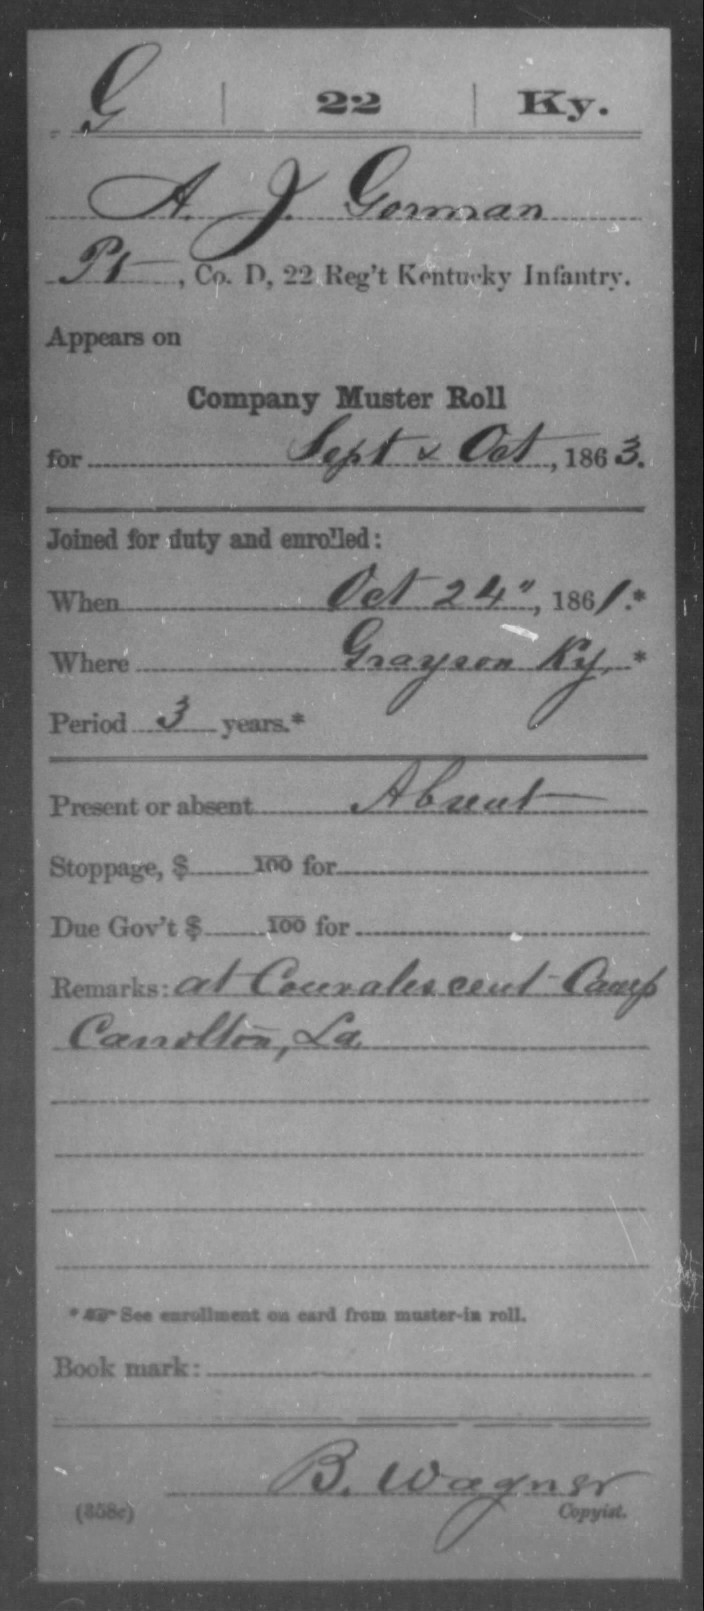 G | 22 | Ky.
A. J. Gorman
Pt, Co. D, 22 Reg't Kentucky Infantry.
Appears on
Company Muster Roll
for Sept & Oct, 1863.
Joined for duty and enrolled:
When Oct 24", 1861.*
Where Grayson Ky *
Period 3 years.*
Present or absent Absent
Stoppage, $ 100 for
Due Gov't $ 100 for
Remarks: at Convalescent Camp
Carrolton, La
* See enrollment on card from muster-in roll.
Book mark:
B. Wagner
(358c) Copyist.